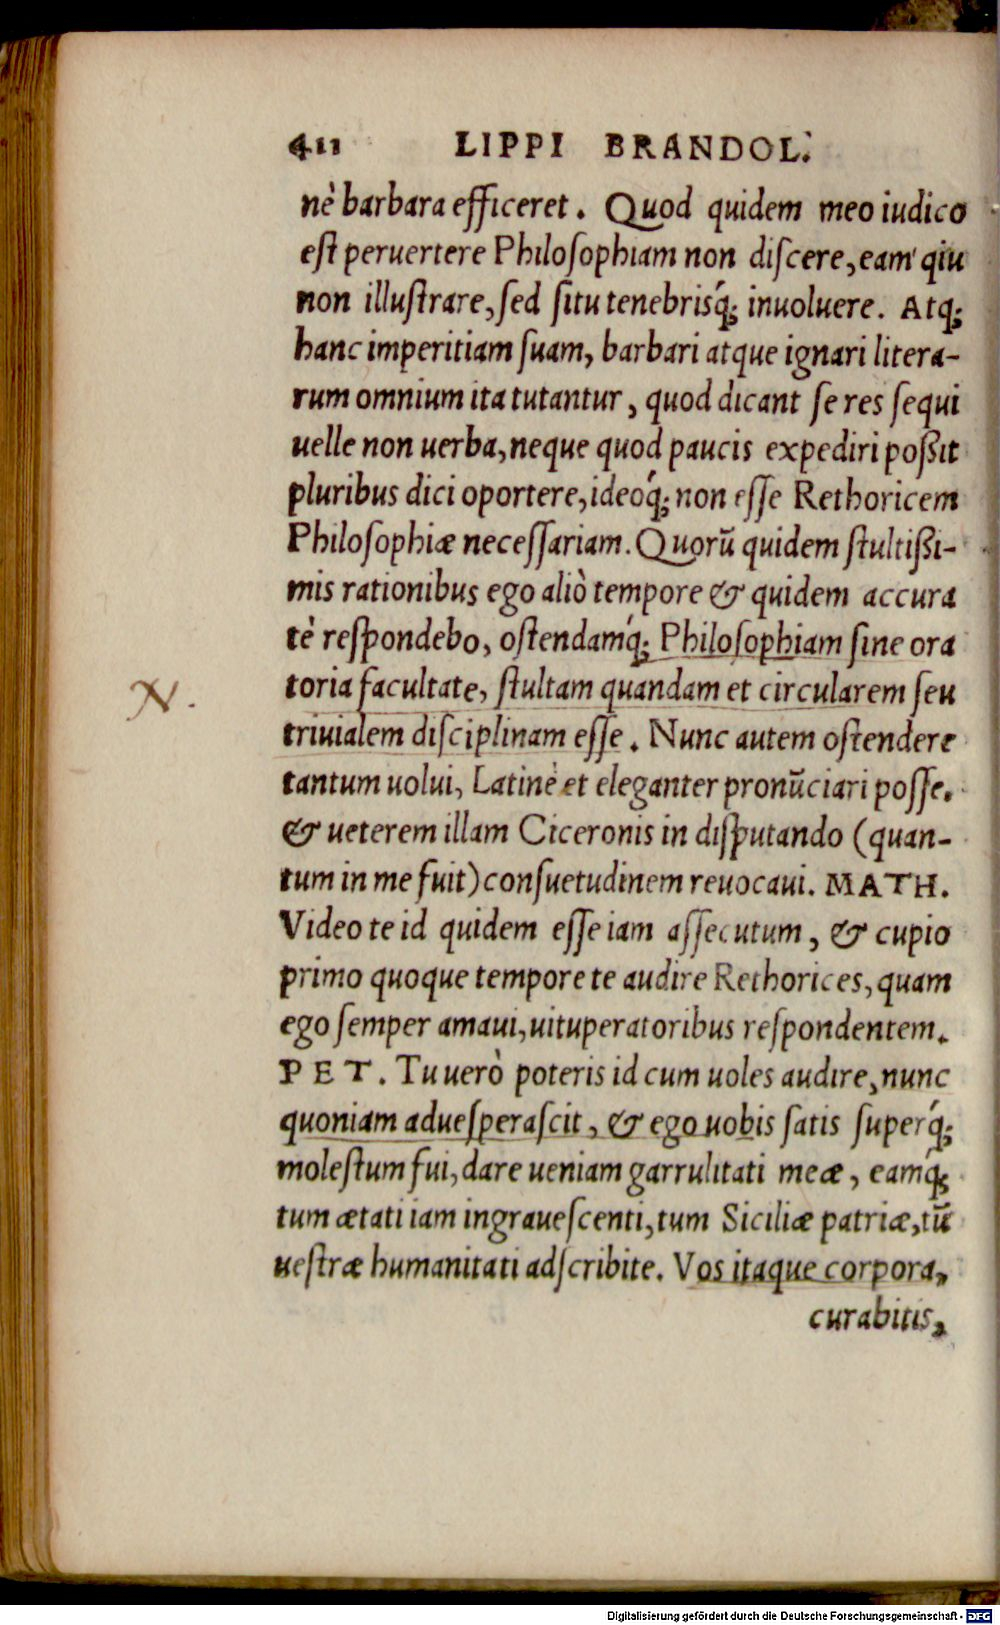 411 LIPPI BRANDOL.
nè barbara efficeret. Quod quidem meo iudico
eſt peruertere Philoſophiam non diſcere, eam qiu
non illuſtrare, ſed ſitu tenebrisq́; inuoluere. Atq;
hanc imperitiam ſuam, barbari atque ignari litera-
rum omnium ita tutantur, quod dicant ſe res ſequi
uelle non uerba, neque quod paucis expediri poßit
pluribus dici oportere, ideoq́; non eſſe Rethoricem
Philoſophiæ neceſſariam. Quorū quidem ſtultißi-
mis rationibus ego aliò tempore & quidem accura
tè reſpondebo, oſtendamq́; Philoſophiam ſine ora
toria facultate, ſtultam quandam et circularem ſeu
N.
triuialem diſciplinam eſſe. Nunc autem oſtendere
tantum uolui, Latinè et eleganter pronūciari poſſe.
& ueterem illam Ciceronis in diſputando (quan-
tum in me fuit) conſuetudinem reuocaui. MATH.
Video te id quidem eſſe iam aſſecutum, & cupio
primo quoque tempore te audire Rethorices, quam
ego ſemper amaui, uituperatoribus reſpondentem.
PET. Tu uerò poteris id cum uoles audire, nunc
quoniam adueſperaſcit, & ego uobis ſatis ſuperq́;
moleſtum fui, dare ueniam garrulitati meæ, eamq́;
tum ætati iam ingraueſcenti, tum Siciliæ patriæ, tū
ueſtræ humanitati adſcribite. Vos itaque corpora,
curabitis,
Digitalisierung gefördert durch die Deutsche Forschungsgemeinschaft - DFG